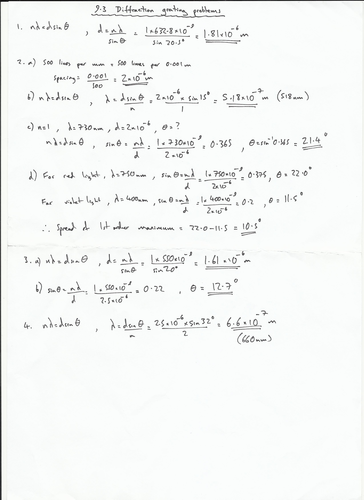 9.3 Diffraction grating problems
1. nλ=dsinθ , d = nλ/sinθ = 1×632.8×10⁻⁹/sin 20.5° = 1.81×10⁻⁶ m
2. a) 500 lines per mm = 500 lines per 0.001m
spacing = 0.001/500 = 2×10⁻⁶ m
b) nλ=dsinθ , λ = dsinθ/n = 2×10⁻⁶ × sin 15°/1 = 5.18×10⁻⁷ m (518nm)
c) n=1 , λ=730nm, d=2×10⁻⁶ , θ=?
nλ=dsinθ , sinθ = nλ/d = 1×730×10⁻⁹/2×10⁻⁶ = 0.365 , θ=sin⁻¹0.365 = 21.4°
d) For red light, λ=750nm, sinθ = nλ/d = 1×750×10⁻⁹/2×10⁻⁶ = 0.375, θ = 22.0°
For violet light, λ=400nm, sinθ = nλ/d = 1×400×10⁻⁹/2×10⁻⁶ = 0.2 , θ = 11.5°
∴ Spread of 1st order maximum = 22.0-11.5 = 10.5°
3. a) nλ=dsinθ , d = nλ/sinθ = 1×550×10⁻⁹/sin 20° = 1.61×10⁻⁶ m
b) sinθ = nλ/d = 1×550×10⁻⁹/2.5×10⁻⁶ = 0.22 , θ = 12.7°
4. nλ=dsinθ , λ = dsinθ/n = 2.5×10⁻⁶×sin 32°/2 = 6.6×10⁻⁷ m
(660nm)